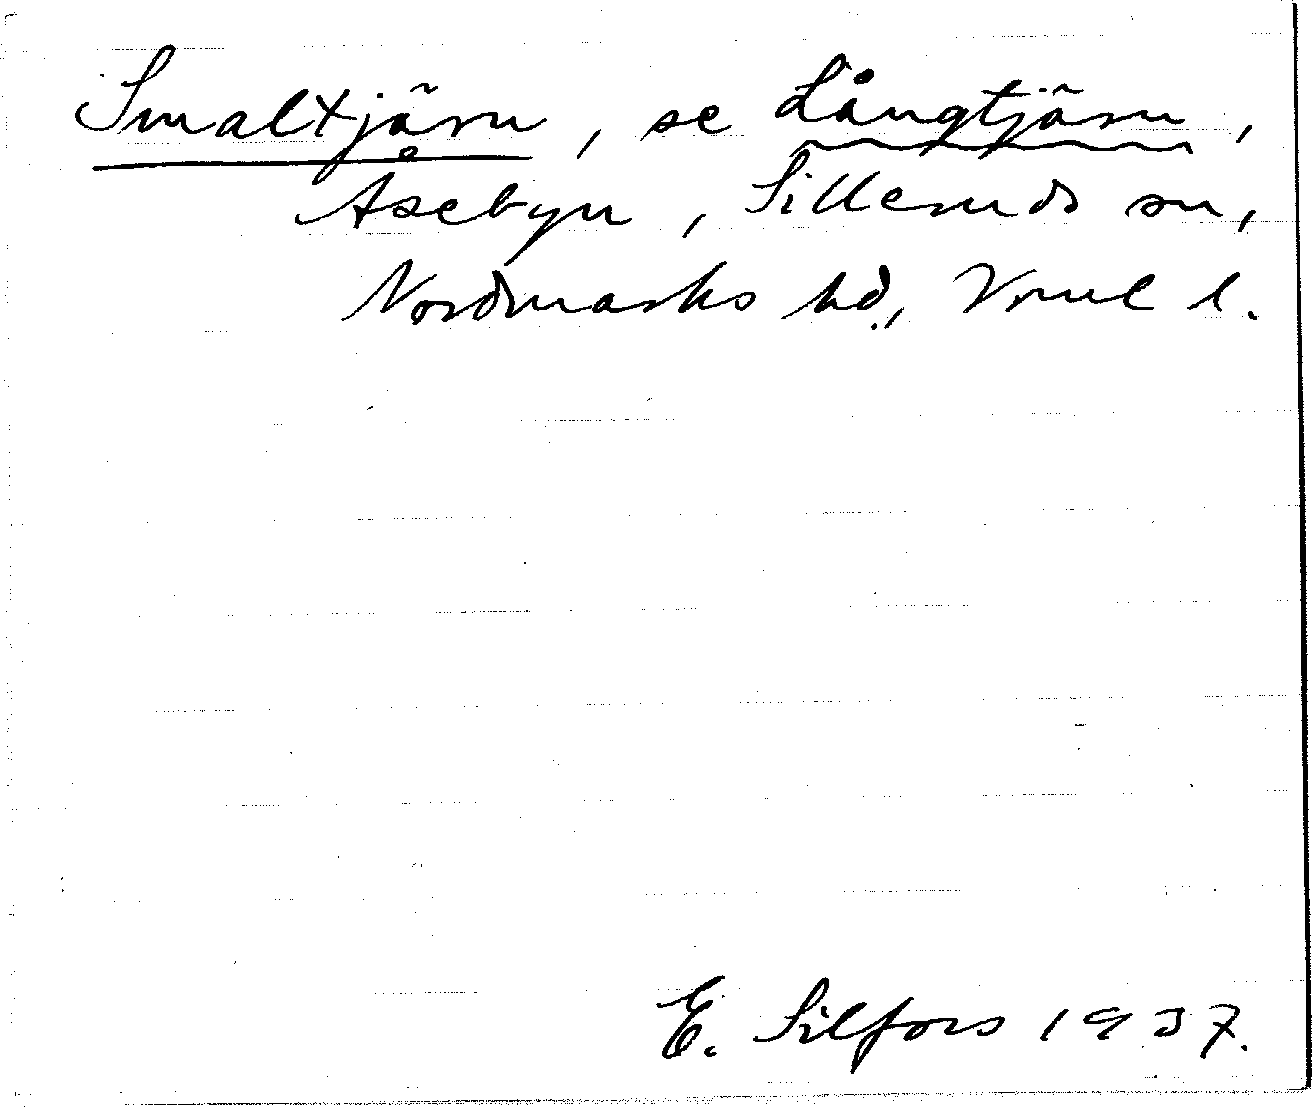 Smaltjärn, se Långtjärn,
Åsebyn, Silleruds sn,
Nordmarks hd., Vrml l.
E. Silfors 1937.